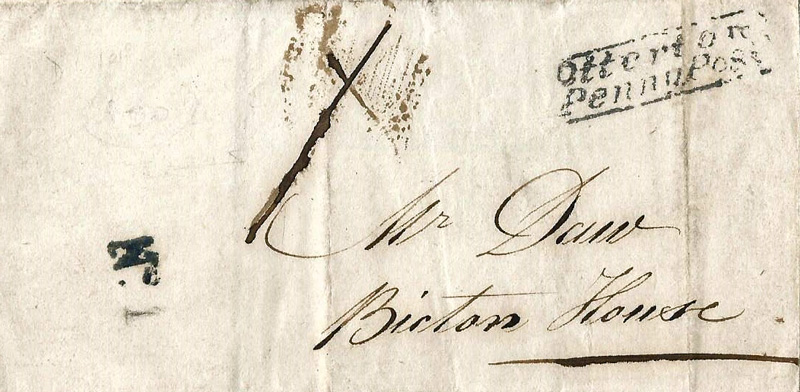 Otterton
Penny Post
Mr Daw
Bicton House
No.
1